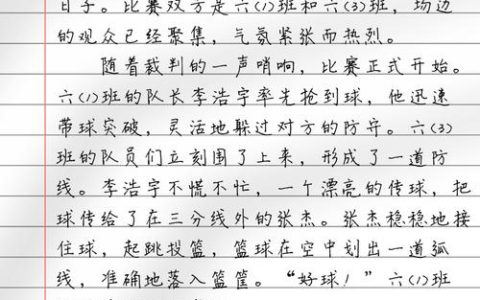 日子。比赛双方是六(1)班和六(3)班，场边
的观众已经聚集，气氛紧张而热烈。
随着裁判的一声哨响，比赛正式开始。
六(1)班的队长李浩宇率先抢到球，他迅速
带球突破，灵活地躲过对方的防守。六(3)
班的队员们立刻围了上来，形成了一道防
线。李浩宇不慌不忙，一个漂亮的传球，把
球传给了在三分线外的张杰。张杰稳稳地接
住球，起跳投篮，篮球在空中划出一道弧
线，准确地落入篮筐。“好球！”六(1)班